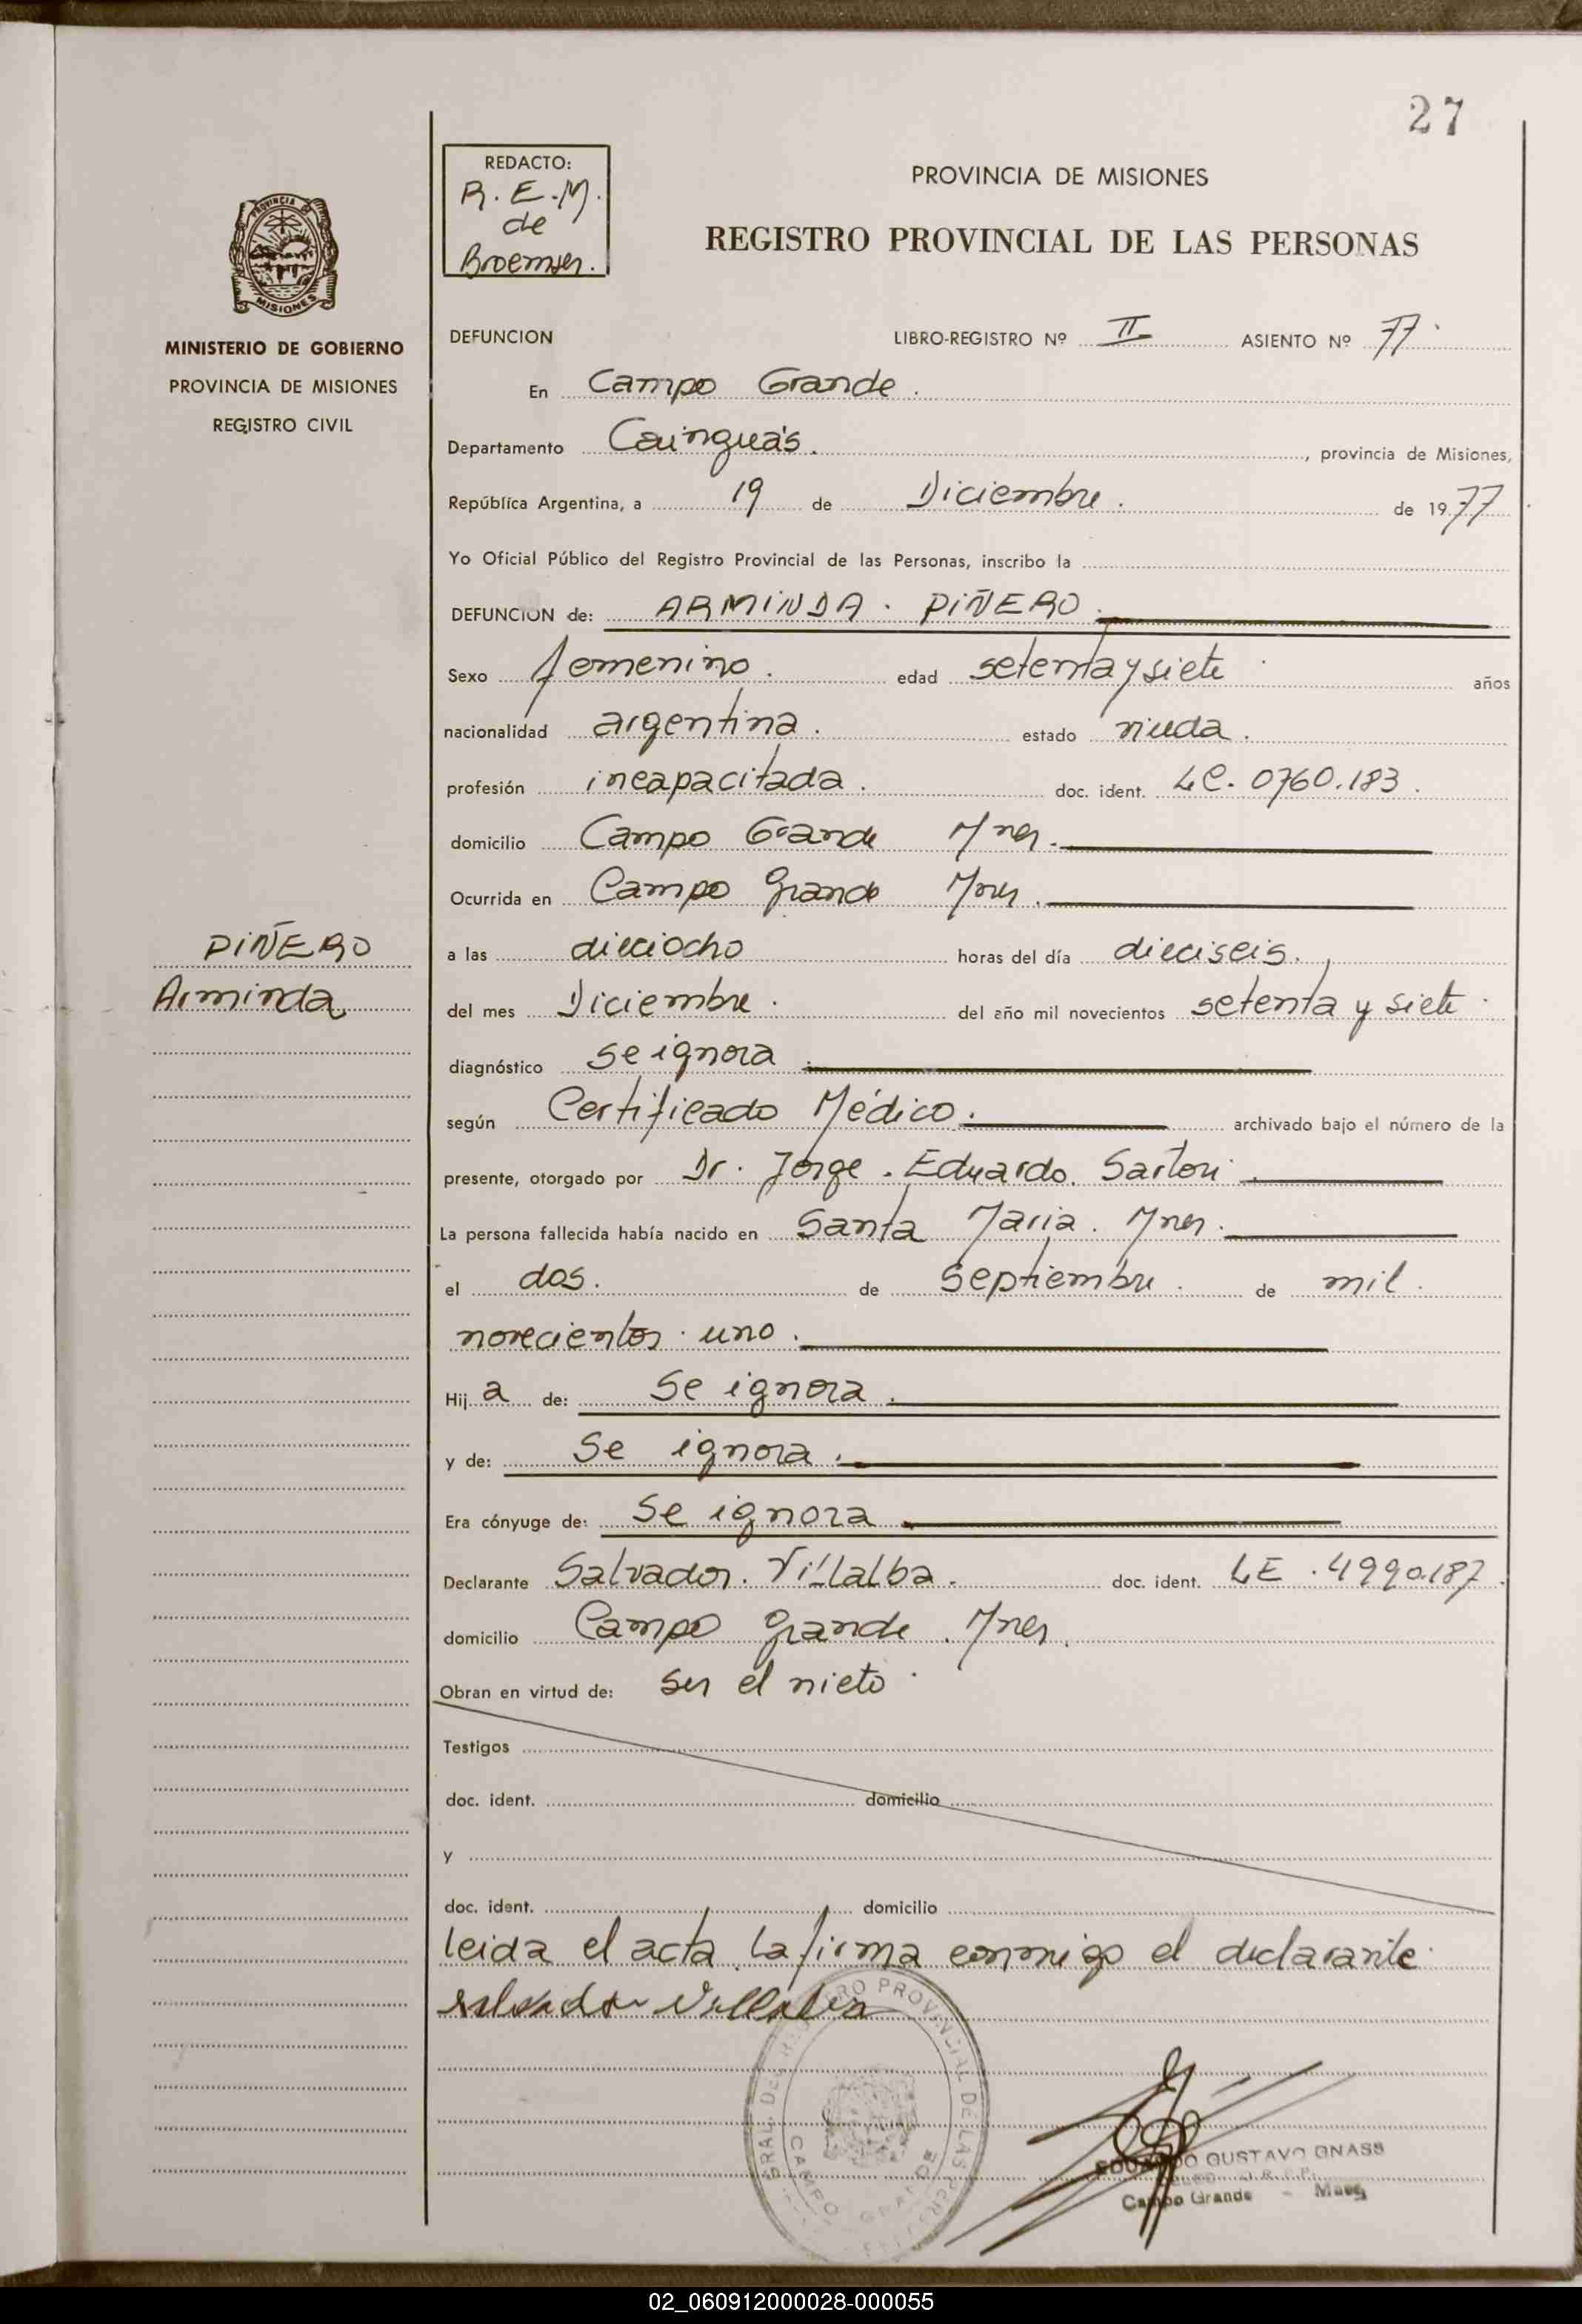 27
REDACTO:
R. E. M.
de
Broemser.
PROVINCIA DE MISIONES
REGISTRO PROVINCIAL DE LAS PERSONAS
PROVINCIA
MISIONES
MINISTERIO DE GOBIERNO
PROVINCIA DE MISIONES
REGISTRO CIVIL
DEFUNCION LIBRO-REGISTRO Nº II ASIENTO Nº 77.
En Campo Grande.
Departamento Cainguás. , provincia de Misiones,
República Argentina, a 19 de Diciembre. de 1977
Yo Oficial Público del Registro Provincial de las Personas, inscribo la
DEFUNCION de: ARMINDA. PIÑERO.
Sexo femenino. edad setenta y siete años
nacionalidad argentina. estado viuda.
profesión incapacitada. doc. ident. LC. 0760.183.
domicilio Campo Grande Mnes.
Ocurrida en Campo Grande Mnes.
PIÑERO
Arminda
a las dieciocho horas del día dieciseis.
del mes Diciembre. del año mil novecientos setenta y siete.
diagnóstico se ignora
según Certificado Médico. archivado bajo el número de la
presente, otorgado por Dr. Jorge. Eduardo. Sartori
La persona fallecida había nacido en Santa Maria. Mnes.
el dos. de Septiembre. de mil.
novecientos. uno.
Hij a de: Se ignora.
y de: Se ignora.
Era cónyuge de: Se ignora
Declarante Salvador. Villalba. doc. ident. LE. 4990.187.
domicilio Campo Grande. Mnes.
Obran en virtud de: ser el nieto.
Testigos
doc. ident. domicilio
y
doc. ident. domicilio
leida el acta la firma conmigo el declarante.
Salvador Villalba
GRAL. DEL REGISTRO PROVINCIAL DE LAS PERS
CAMPO GRANDE
EDUARDO GUSTAVO GNASS
Campo Grande - Mnes
02_060912000028-000055